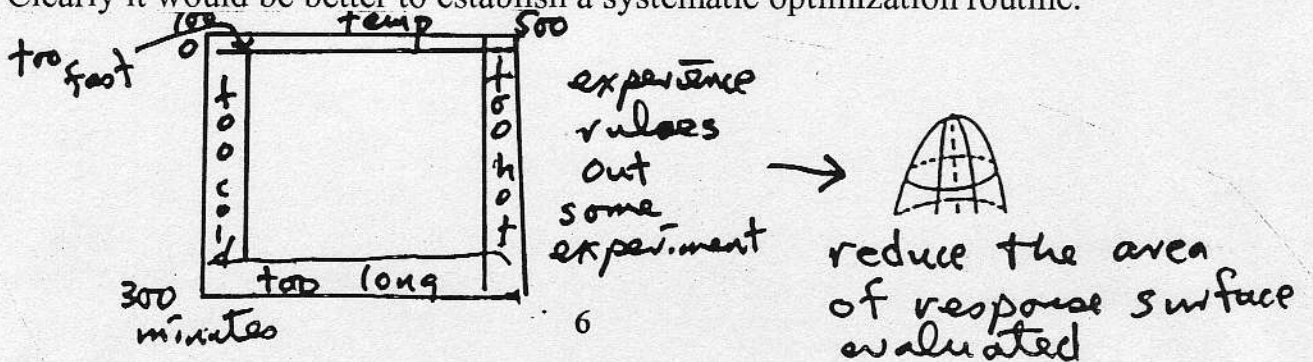 Clearly it would be better to establish a systematic optimization routine.
100 temp 500
0
too fast
too cold
too hot
too long
300
minutes
experience
rulaes
out
some
experiment
→
reduce the area
of response surface
evaluated
6